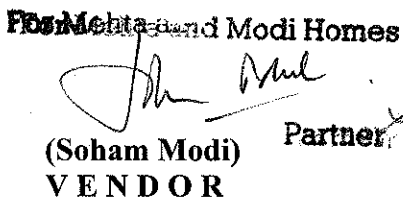 For Mehta and Modi Homes
Partner
(Soham Modi)
V E N D O R